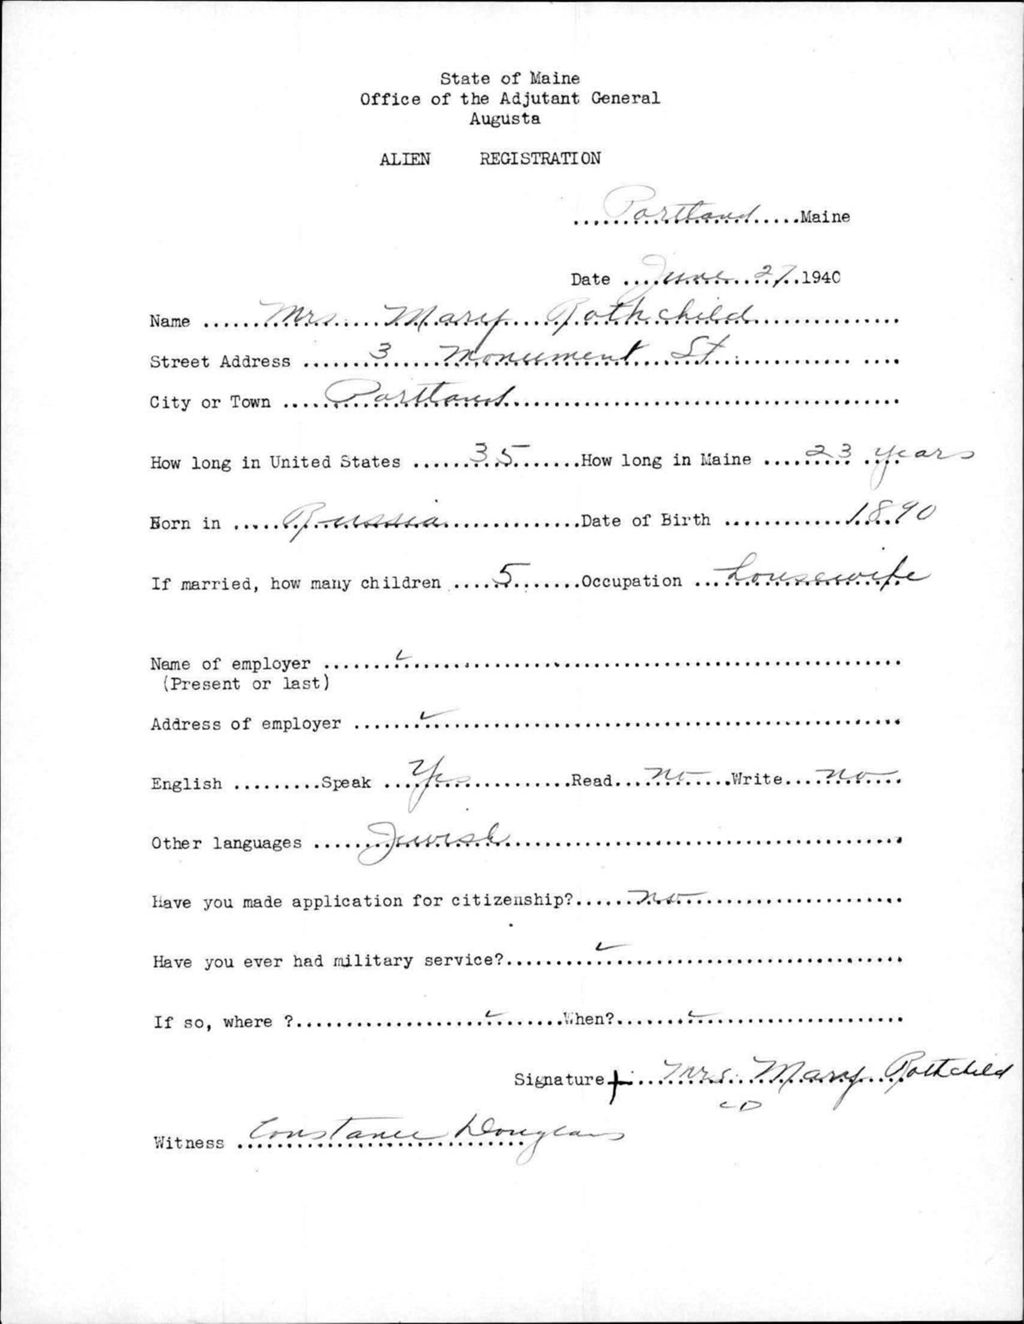 State of Maine
Office of the Adjutant General
Augusta
ALIEN REGISTRATION
Portland Maine
Date June 27 1940
Name Mrs. Mary Rothchild
Street Address 3 Monument St.
City or Town Portland
How long in United States 35 How long in Maine 23 years
Born in Russia Date of Birth 1890
If married, how many children 5 Occupation housewife
Name of employer ✓
(Present or last)
Address of employer ✓
English Speak Yes Read no Write no
Other languages Jewish
Have you made application for citizenship? no
Have you ever had military service? ✓
If so, where ? ✓ When? ✓
Signature + Mrs. Mary Rothchild
CD
Witness Constance Douglass